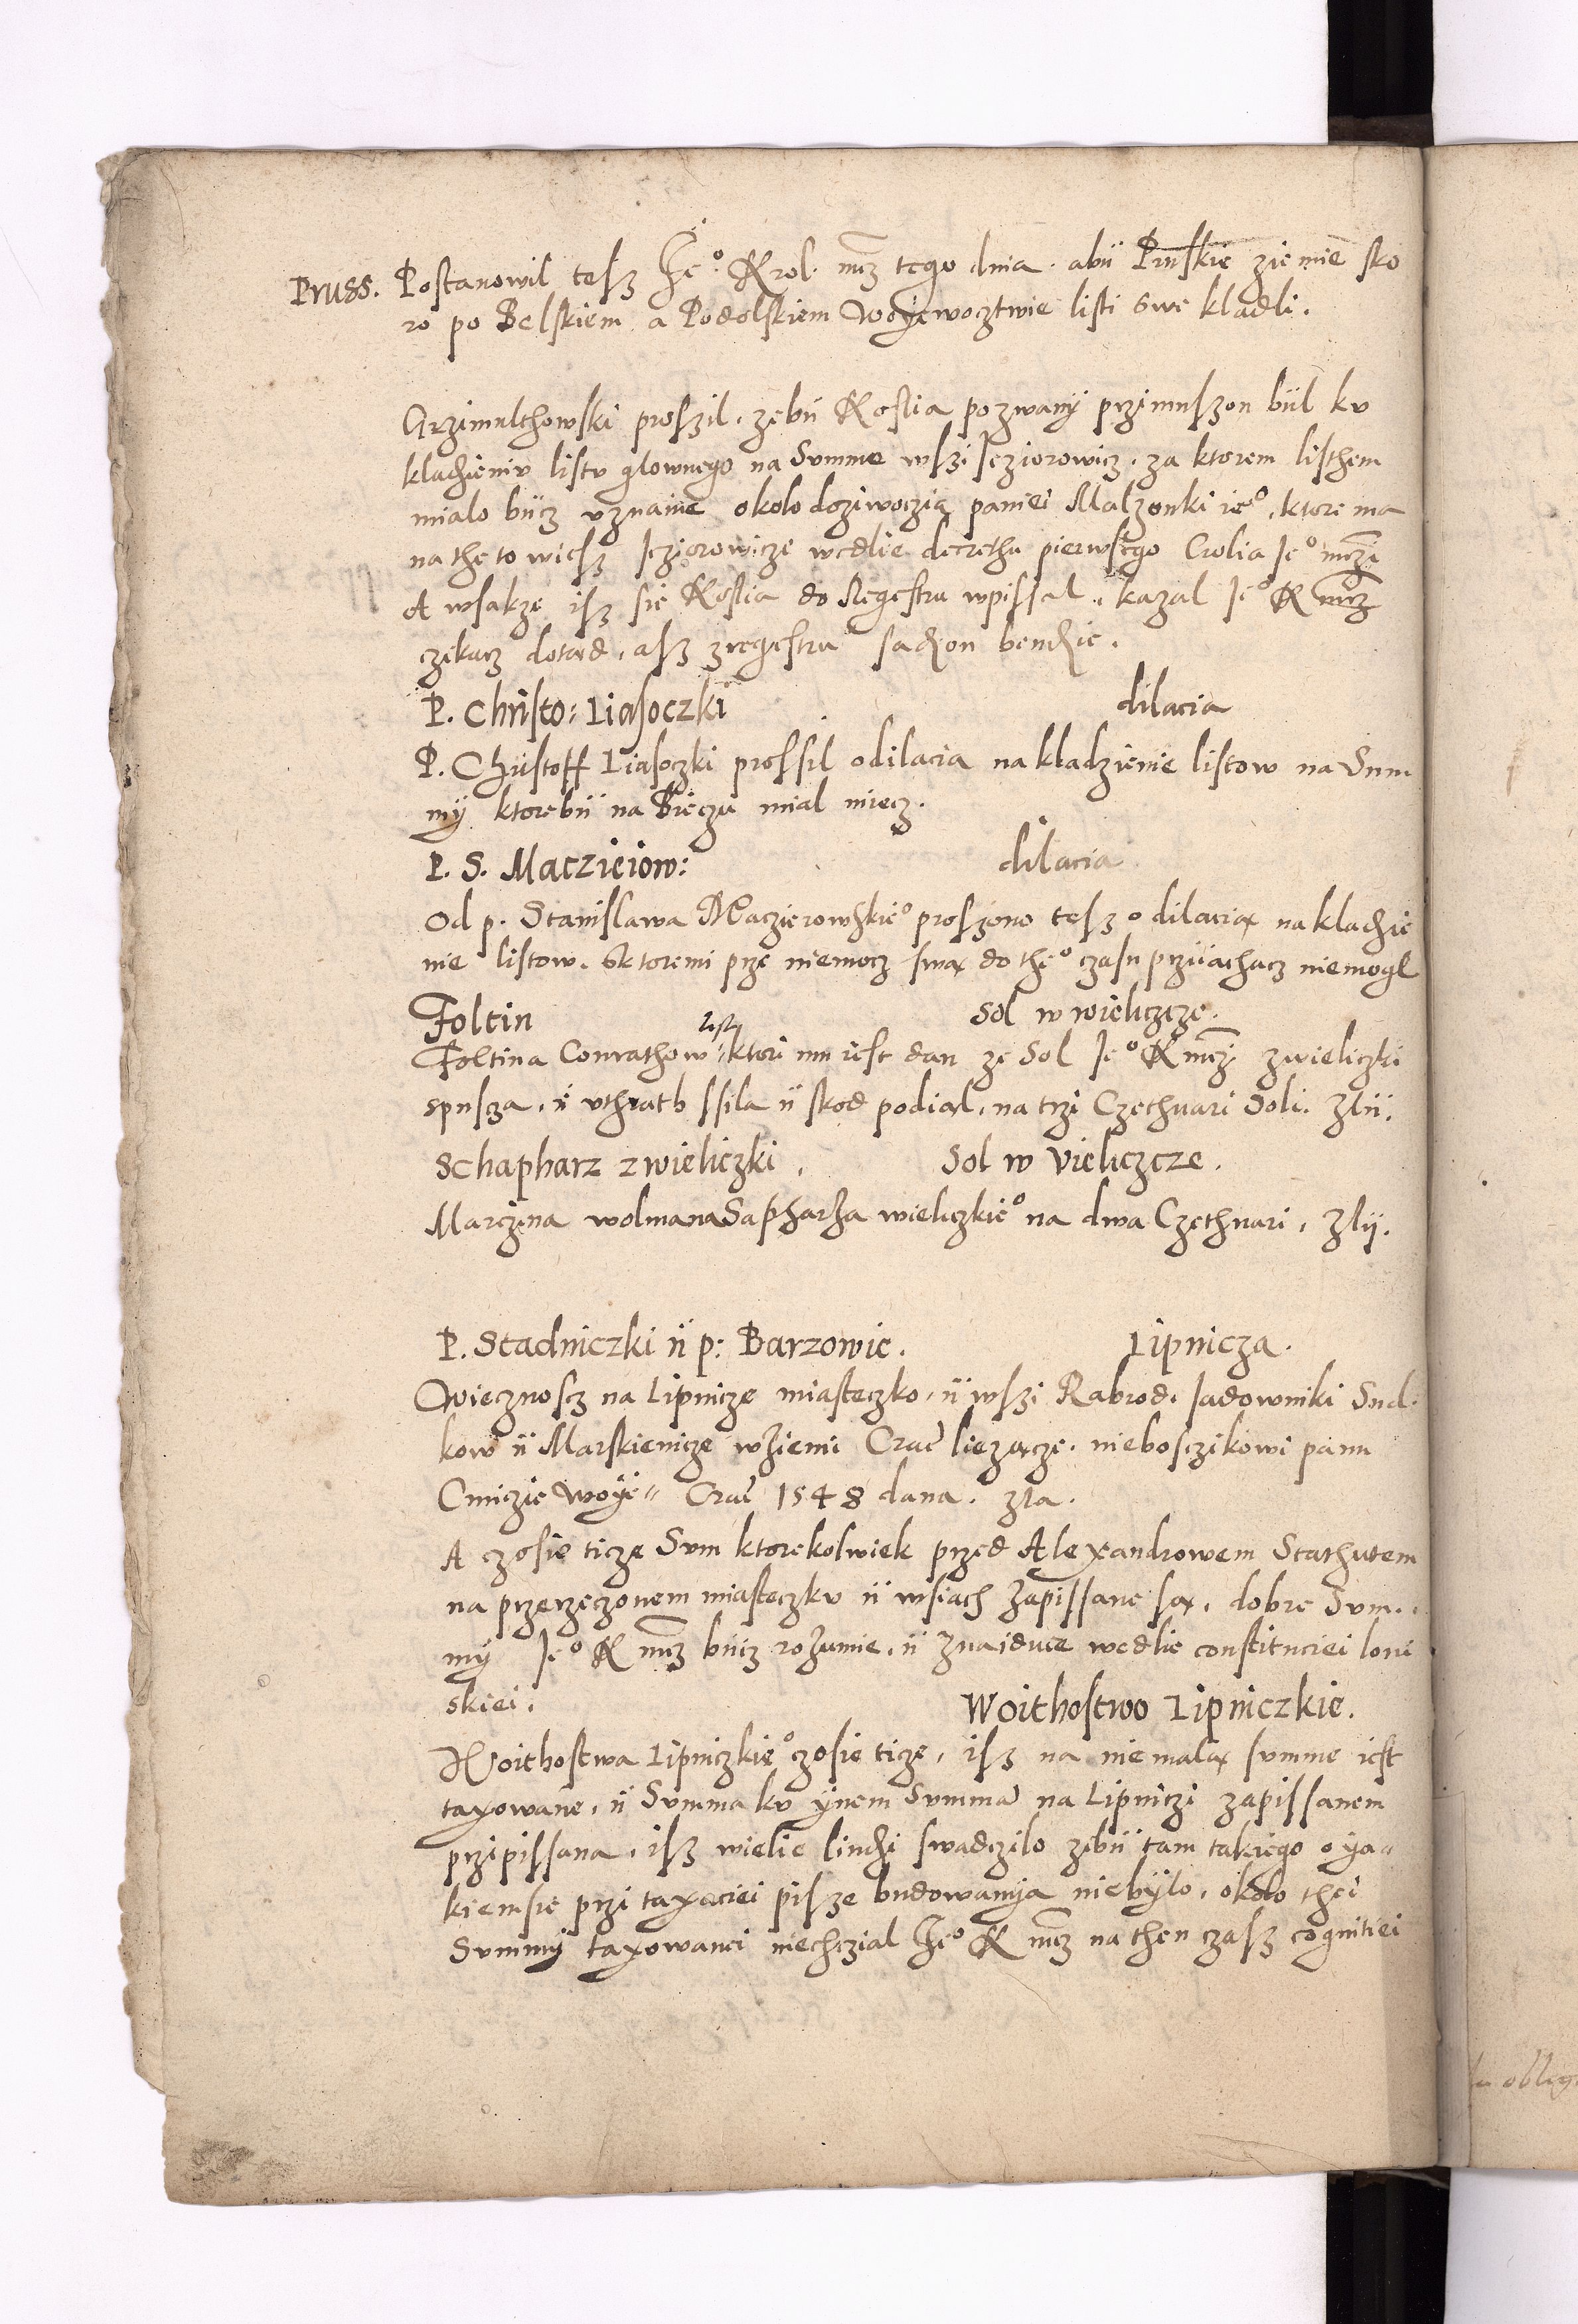 Pruss. Postanowil tesz Je° Krol. mcz tego dnia. abÿ Pruskie ziemie sko
ro po Belskiem a Podolskiem Woyewocztwie listi swe kladli.
Grzimulthowski proszil, zebÿ Kostia pozwany przimuszon bÿl ku
kladzieniu listu glownego na Summe wszi Jeziorowicz, za ktorem listhem
mialo bÿcz uznanie okolo doziwoczia paniei Malzonki ie°, ktore ma
na the to wiesz Jeziorowicze wedlie decrethu pierwsego Crolia Je° mczi
A wsakze isz sie Kostia do Regestru wpissal, kazal Je° K mcz
czekacz dotad, asz zregestru sadzon bendzie.
P. Christo: Liasoczki dilacia
P. Christoff Liasoczki prossil odilacia na kladzienie listow na Sum
my ktorebÿ na Bieczu mial miecz.
P. S. Maczieiow: dilacia
Od p. Stanislawa Macziejowskie° proszono tesz o dilacią na kladzie
nie listow. Sktoremi prze niemocz swą do the° czasu przÿachacz niemogl
Foltin Sol w wieliczcze.
Foltina Conrathow listh ktori mu iest dan ze Sol Je° K mczi zwieliczki
spuscza, ÿ uthrath ssila ÿ skod podial, na trzi Czethuari Soli. zlÿ.
Schapharz zwieliczki. Sol w Vieliczcze.
Marczina wolmana Sapharza wieliczkie° na dwa Czethuari, zlÿ.
P. Stadniczki ÿ p: Barzowie. Lipnicza.
Wiecznoscz na Lipnicze miasteczko, ÿ wszi Rabrod. Jadowniki Sud.
kow ÿ Marskienicze wziemi Crac liezącze. nieboszczikowi panu
Cmiczie woye= Crac 1548 dana. zla.
A czosie ticze Sum ktorekolwiek przed Alexandrowem Stathutem
na przerzeczonem miasteczku ÿ wsiach zapissane są, dobre Sum.
my Je° K mcz bÿcz rozumie, ÿ znaiduie wedlie constitucieі loni
skiei. Woithostwo Lipniczkie.
Woithostwa Lipniczkie° czosie ticze, isz na niemalą summe iest
taxowane, ÿ Summa ku ynem Summam na Lipniczi zapissanem
przipissana, isz wielie liudzi swadczilo zebÿ tam takiego o ya=
kiemsie przi taxaciei pisze budowanya niebylo, okolo thei
Summÿ taxowanei niechczial Je° K mcz na then czasz cognitiei